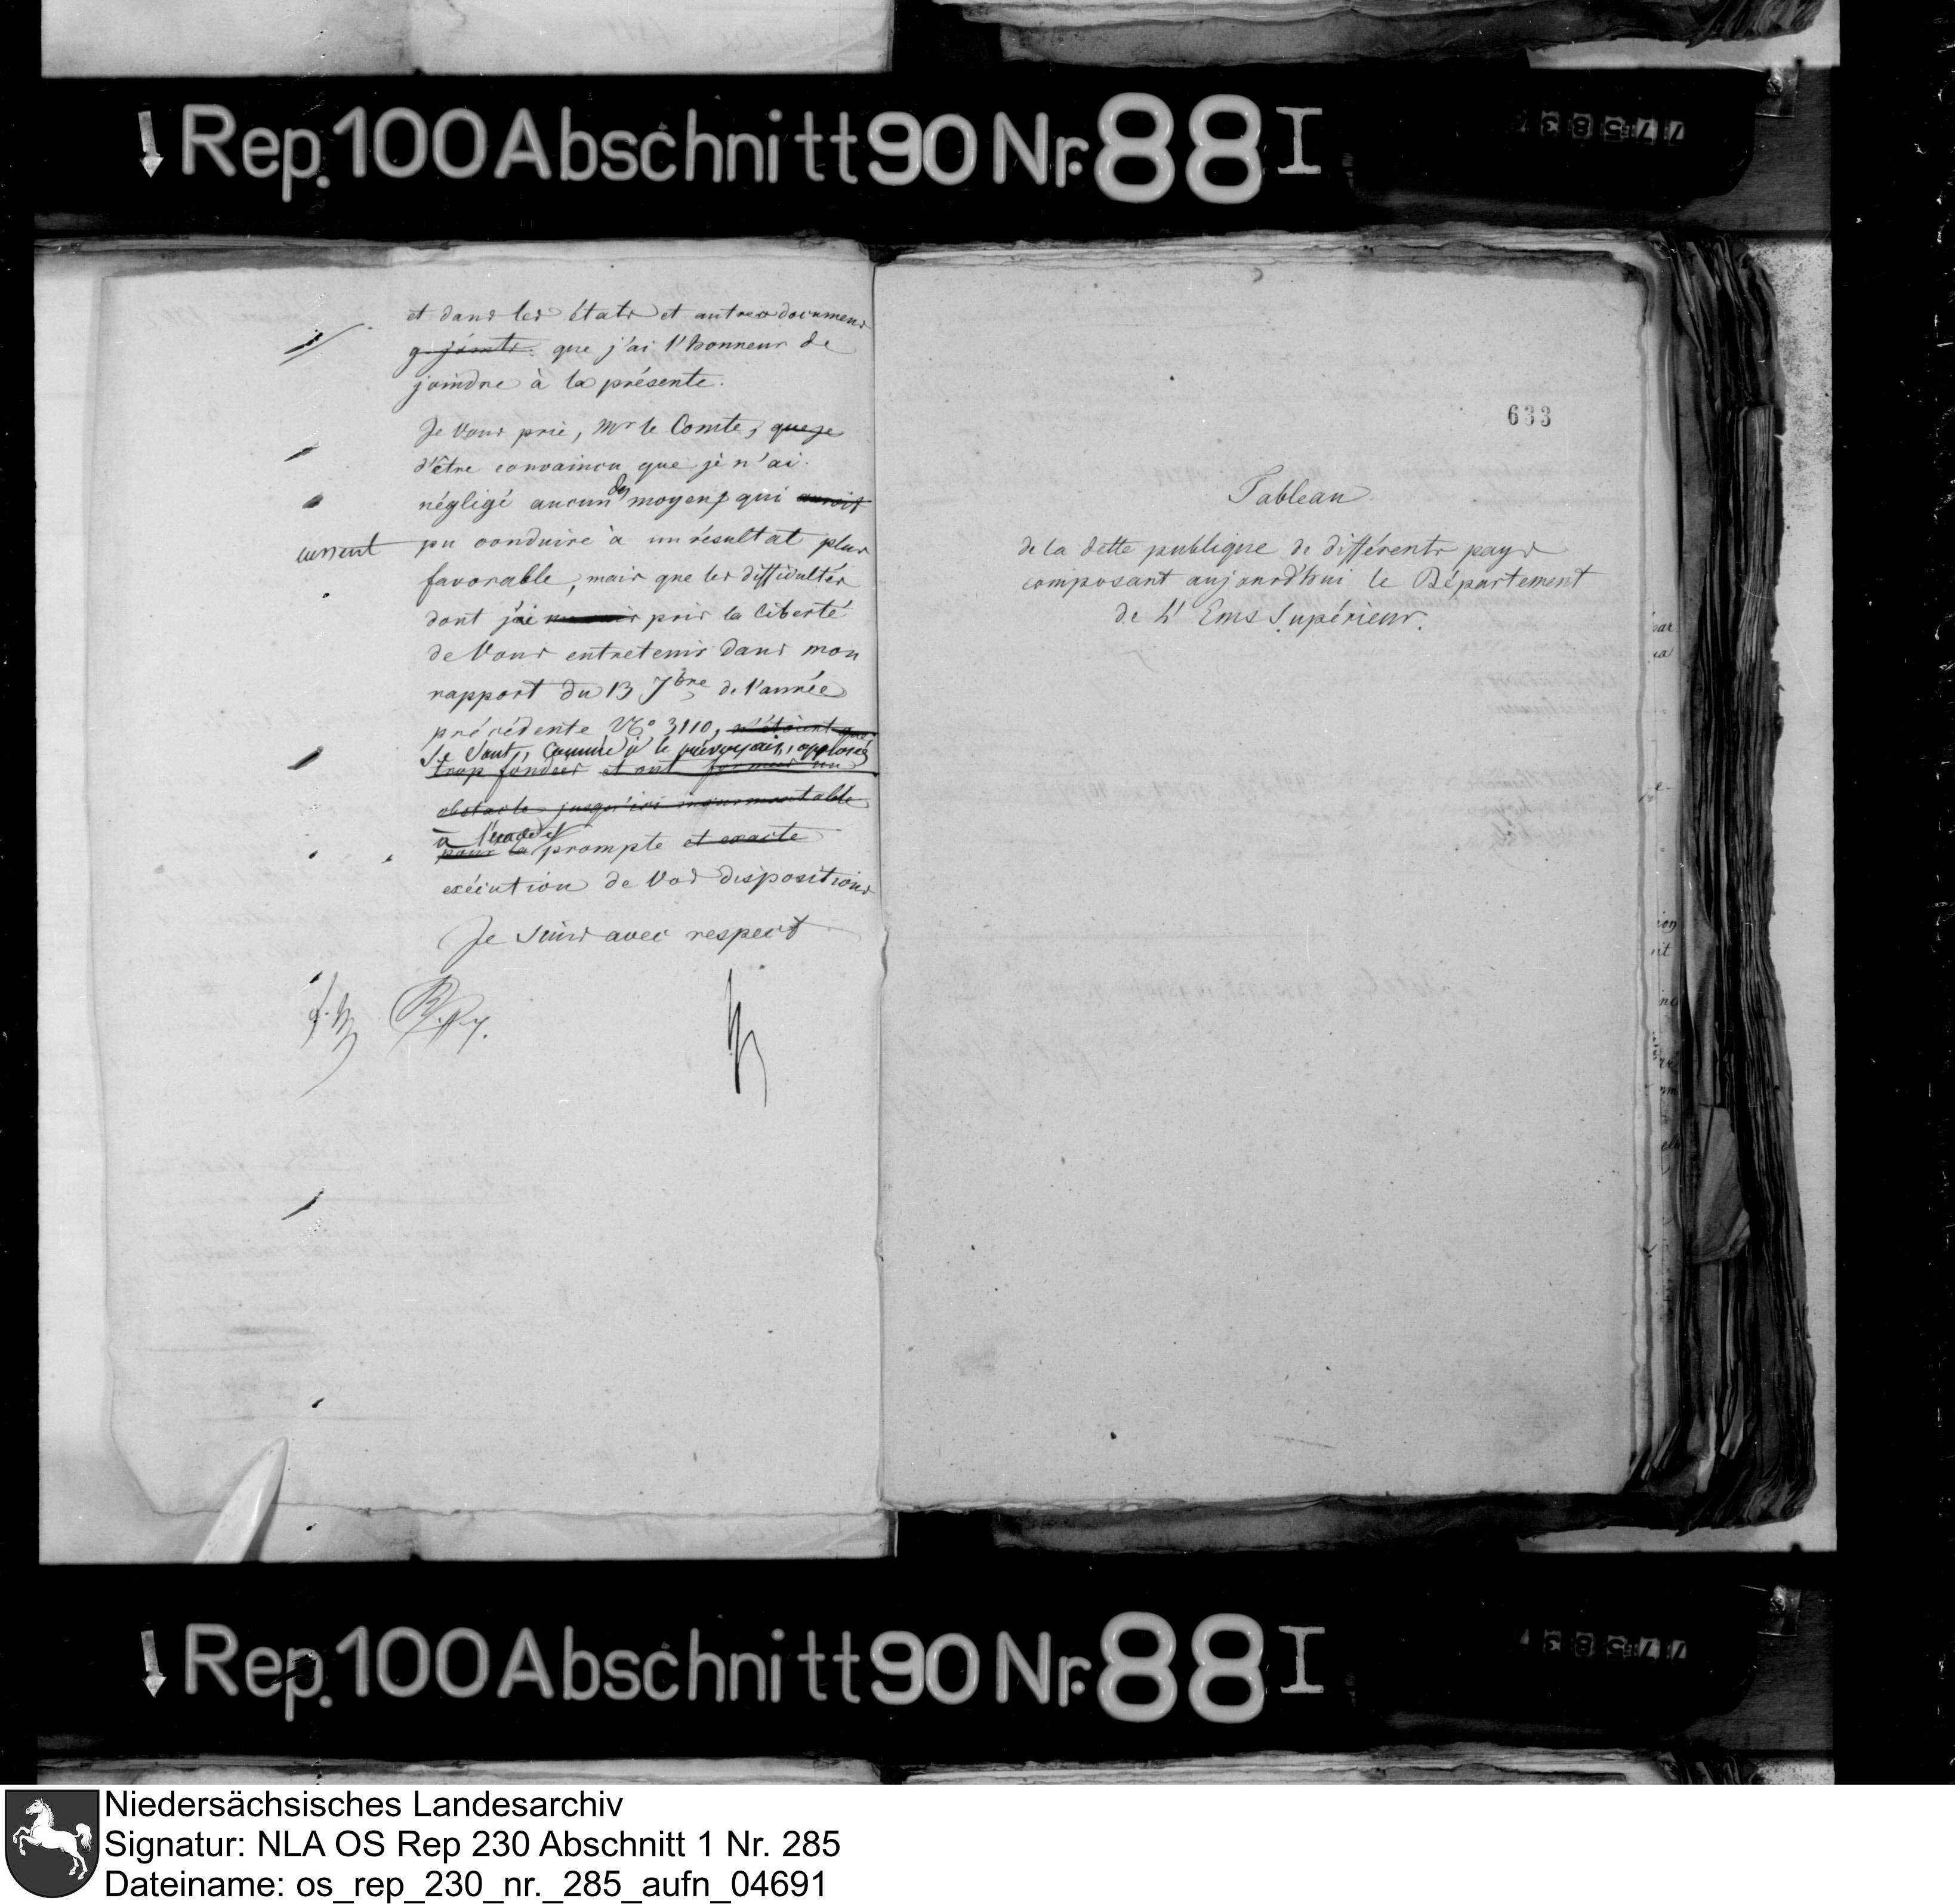 Rep. 100 Abschnitt 90 Nr. 88 I
77583
et dans les états et autres documens
que j'ai l'honneur de
joindre à la présente.
Je Vous prie, Mr le Comte, que je
d'être convaincu que je n'ai
négligé aucun des moyens qui auroit
eussent pu conduire à un résultat plus
favorable, mais que les difficultés
dont j'ai pris la liberté
de Vous entretenir dans mon
rapport du 13 7bre de l'année
précédente No 3110, n'étoient que
se sont, comme je le prévoyais, opposés
trop fondées et ont formés un
obstacle jusqu'ici insurmontable
à l'exacte et
pour la prompte et exacte
exécution de Vos dispositions
Je suis avec respect
633
Tableau
de la dette publique de différents pays
composant aujourd'hui le Département
de L'Ems Supérieur.
Rep. 100 Abschnitt 90 Nr. 88 I
77583
Niedersächsisches Landesarchiv
Signatur: NLA OS Rep 230 Abschnitt 1 Nr. 285
Dateiname: os_rep_230_nr._285_aufn_04691